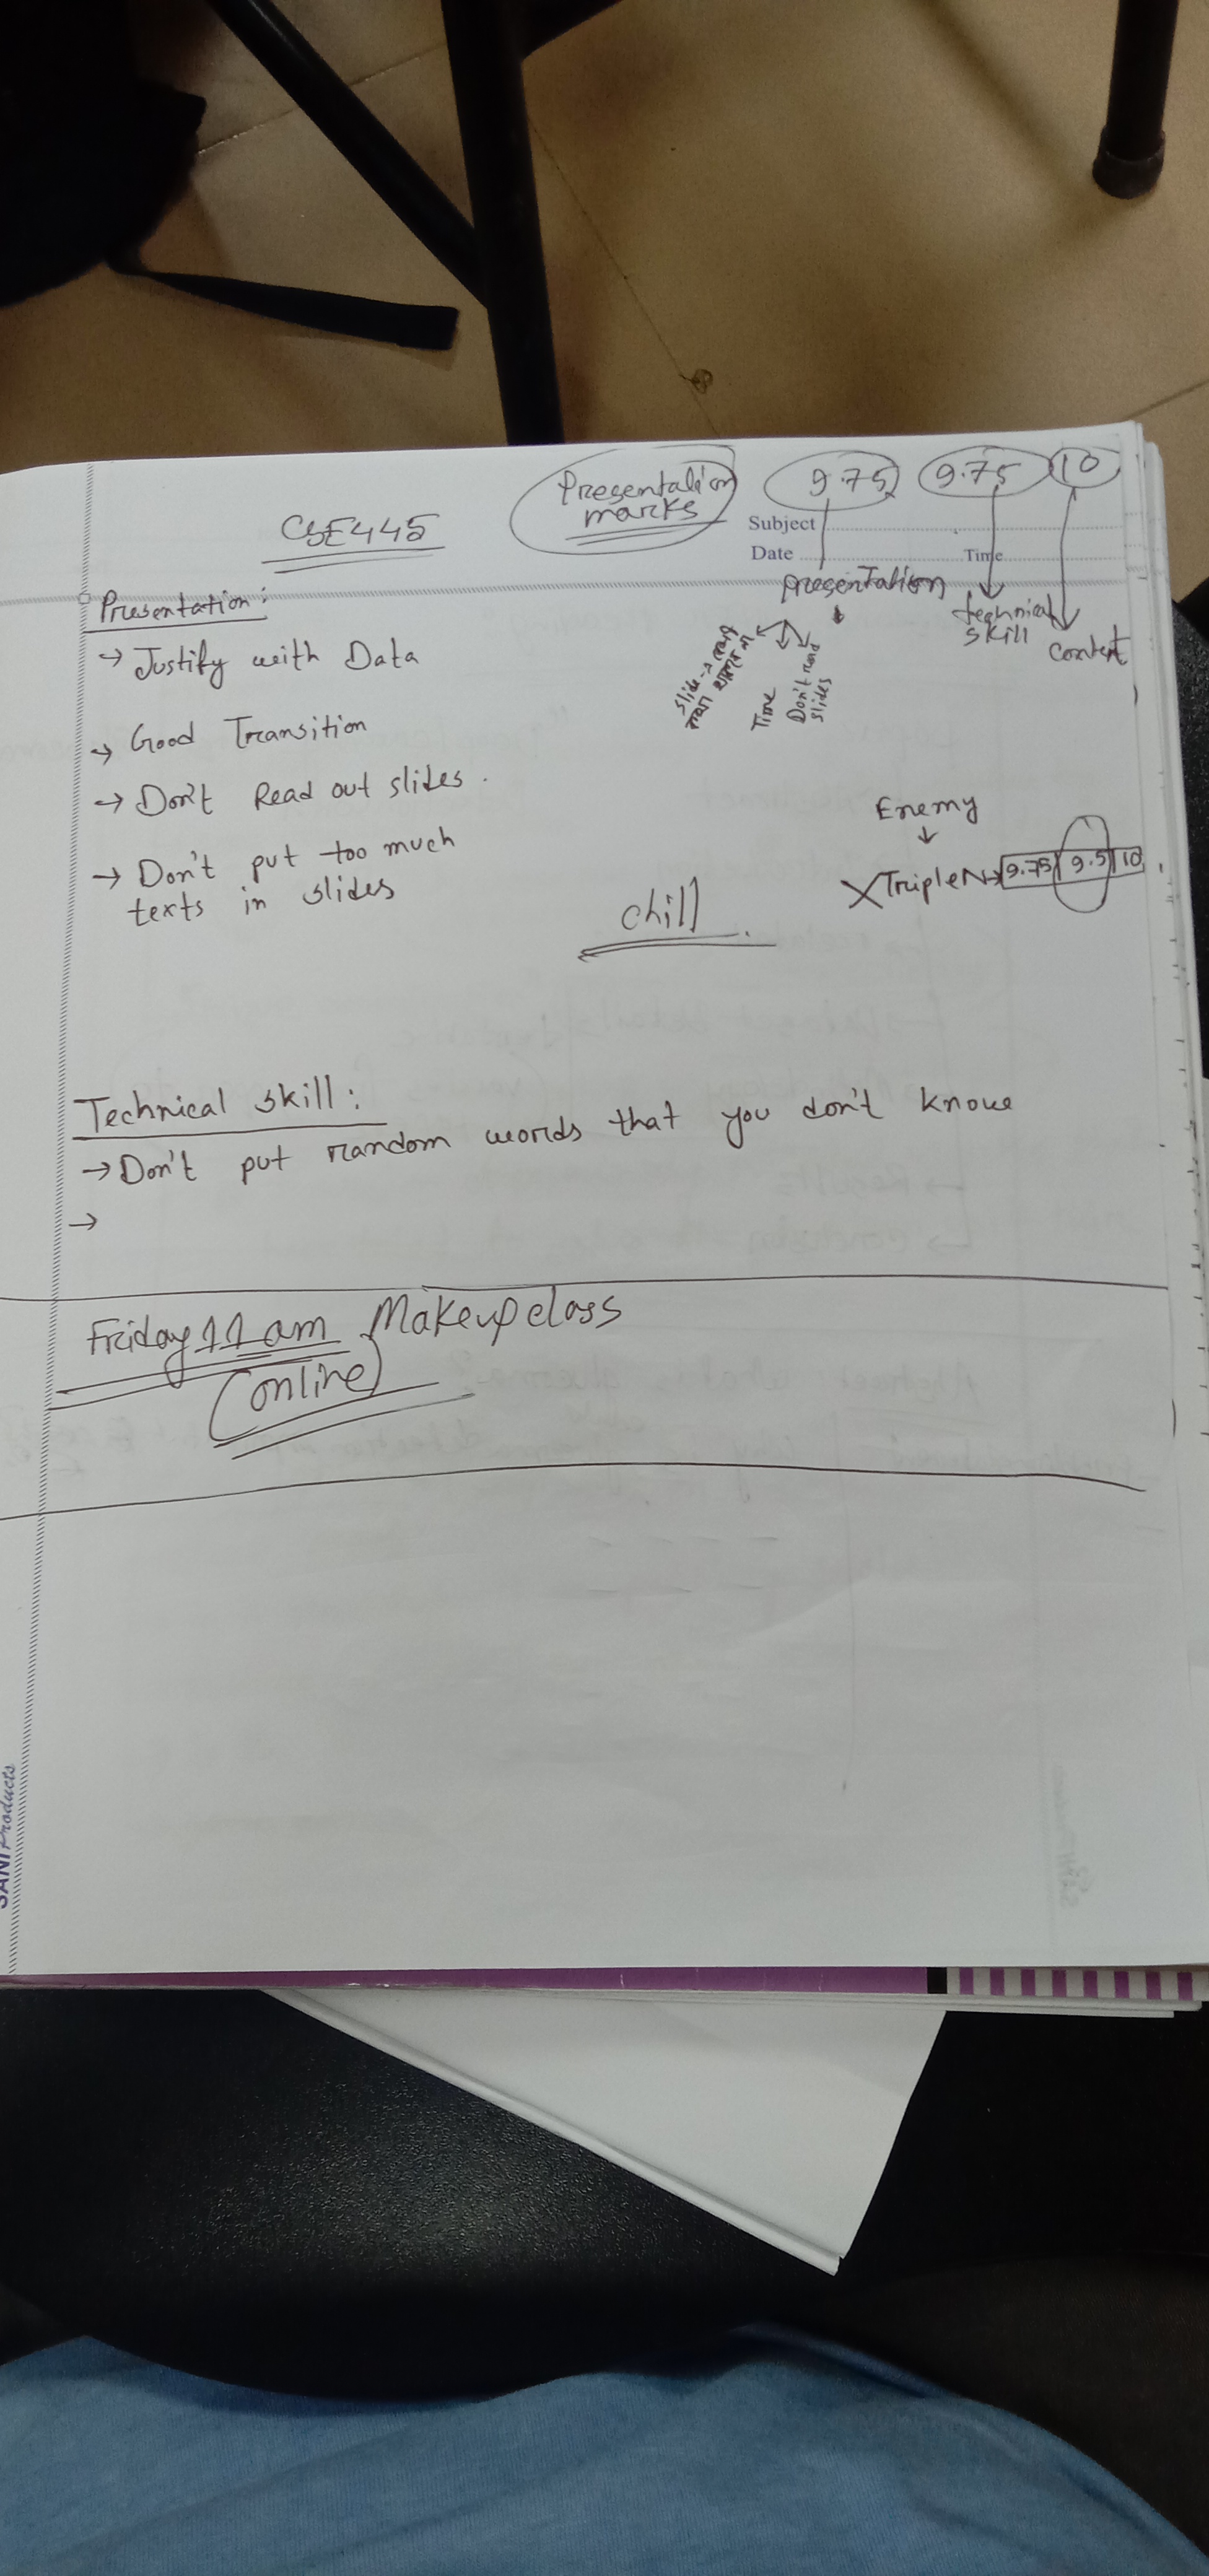 Presentation marks 9.75 9.75 10
CSE445
Subject
Date Time
presentation
technical skill
content
slide →
Time
Don't read slides
Presentation:
→ Justify with Data
→ Good Transition
→ Don't Read out slides.
→ Don't put too much
texts in slides
Enemy
XTripleN→ 9.75 9.5 10
chill
Technical skill:
→ Don't put random words that you don't know
→
Friday 11 am Makeup class
(online)
SANI Products